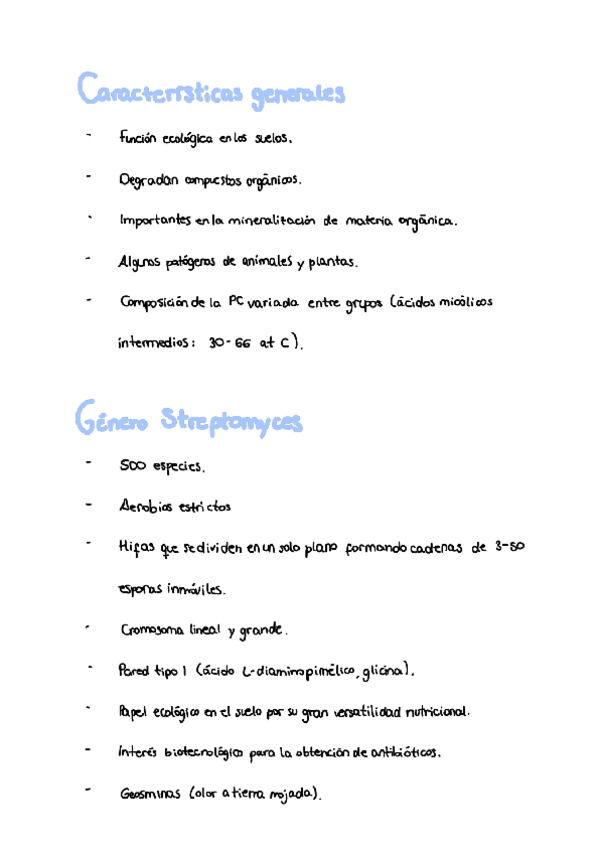 Características generales
- Función ecológica en los suelos.
- Degradan compuestos orgánicos.
- Importantes en la mineralización de materia orgánica.
- Algunos patógenos de animales y plantas.
- Composición de la PC variada entre grupos (ácidos micólicos
intermedios: 30-66 at C).
Género Streptomyces
- 500 especies.
- Aerobios estrictos
- Hifas que se dividen en un solo plano formando cadenas de 3-50
esporas inmóviles.
- Cromosoma lineal y grande.
- Pared tipo 1 (ácido L-diaminopimélico, glicina).
- Papel ecológico en el suelo por su gran versatilidad nutricional.
- Interés biotecnológico para la obtención de antibióticos.
- Geosminas (olor a tierra mojada).